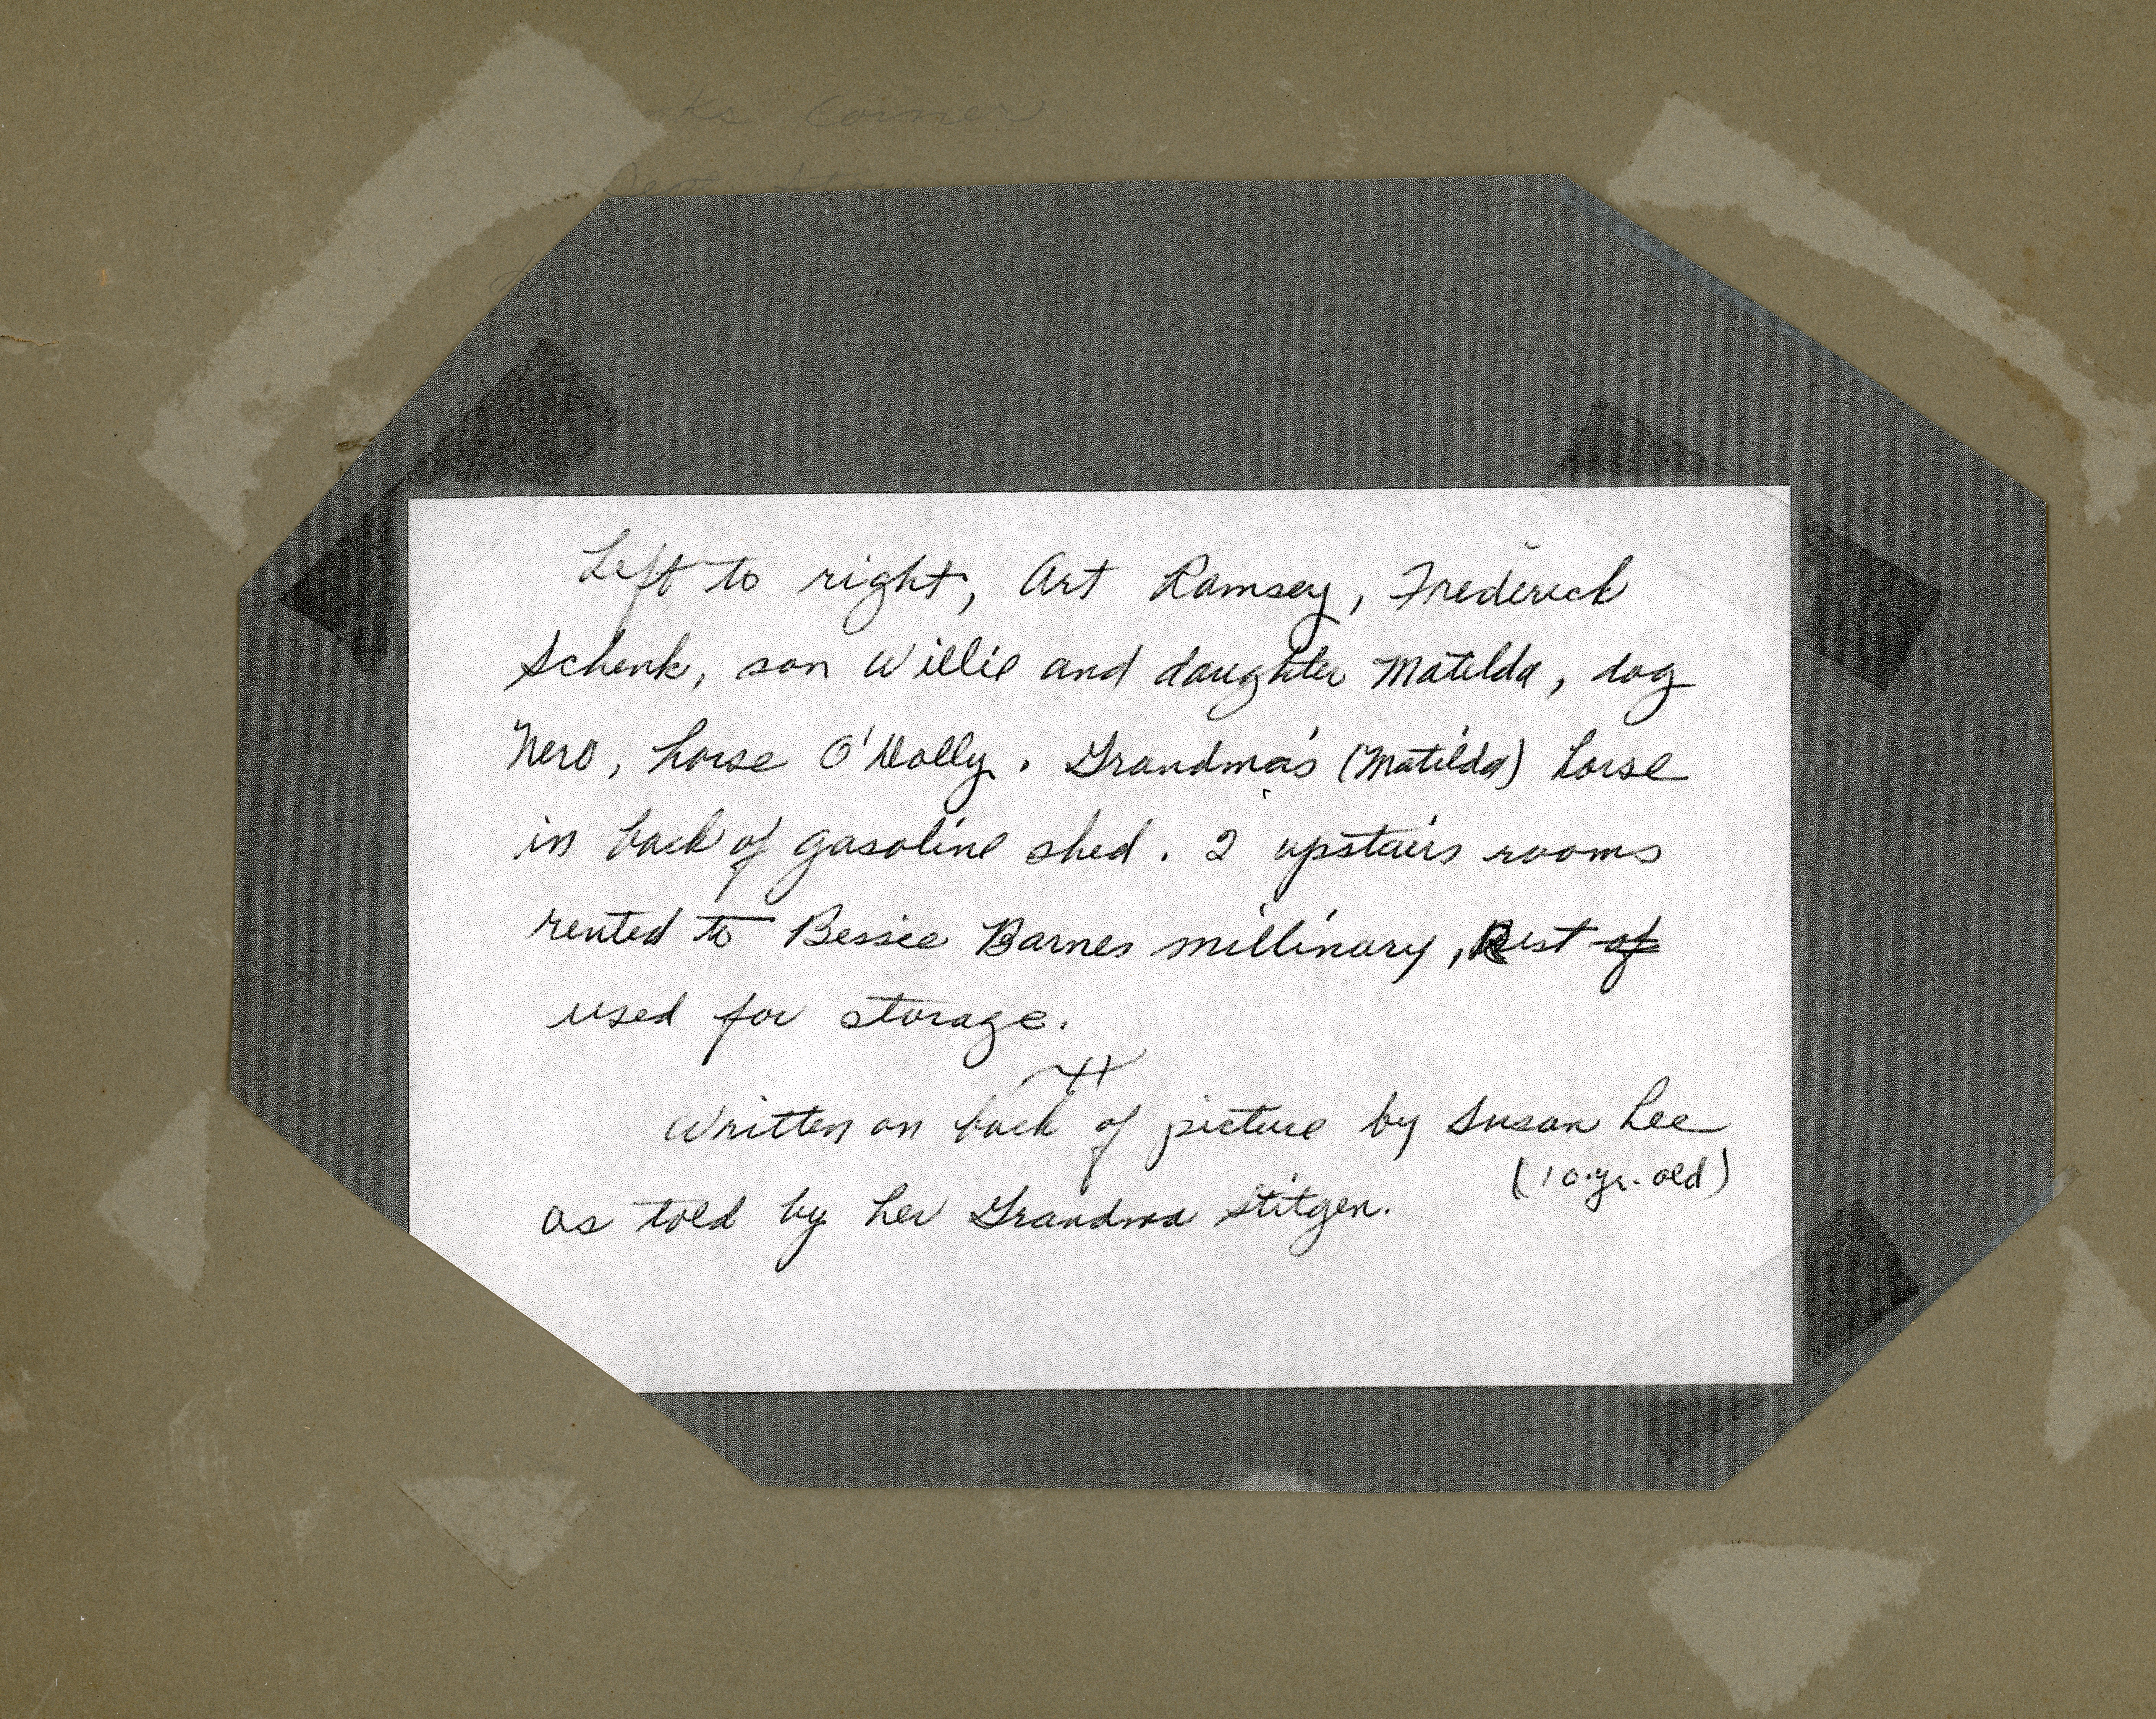 Corner
Left to right, Art Ramsey, Frederick
Schenk, son Willie and daughter Matilda, dog
Nero, horse O'Dolly. Grandma's (Matilda) horse
in back of gasoline shed. 2 upstairs rooms
rented to Bessie Barnes millinary, Rest of
used for storage.
Written on back of picture by Susan Lee
(10.yr. old)
as told by her Grandma Stitgen.